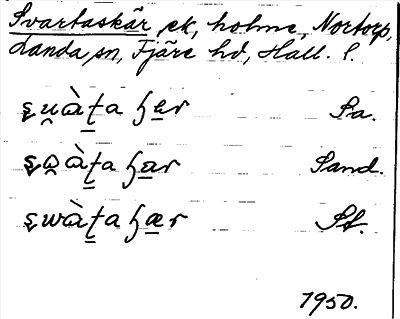 Svartaskär, sk, holme, Nortorp,
Landa sn, Fjäre hd, Hall. l.
s̬u̯àt̠a ɧær Sa.
s̬o̯àt̠a ɧar Sand.
s̬wàt̠a ɧær St.
1950.